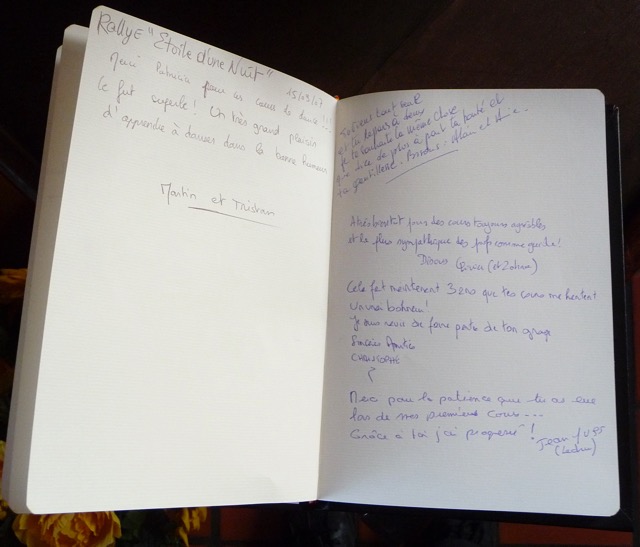 Rallye "Etoile d'une Nuit"
15/09/07
Merci Patricia pour ces cours de danse !!!
Ce fut superbe! Un très grand plaisir
d'apprendre à danser dans la bonne humeur
Martin et Tristan
tout seul
et tu repars à deux
je te souhaite la même chose
que dire de plus à part ta bonté et
ta gentillesse. Bisous: Alain et
A très bientôt pour des cours toujours agréables
et la plus sympathique des profs comme guide!
Bisous (et Zohra)
Cela fait maintenant 3 ans que tes cours me
Un vrai bonheur!
Je suis ravi de faire partie de ton groupe
Sincères Amitiés
CHRISTOPHE
Merci pour la patience que tu as eue
lors de mes premiers cours...
Grâce à toi j'ai progressé!
Jean-Yves